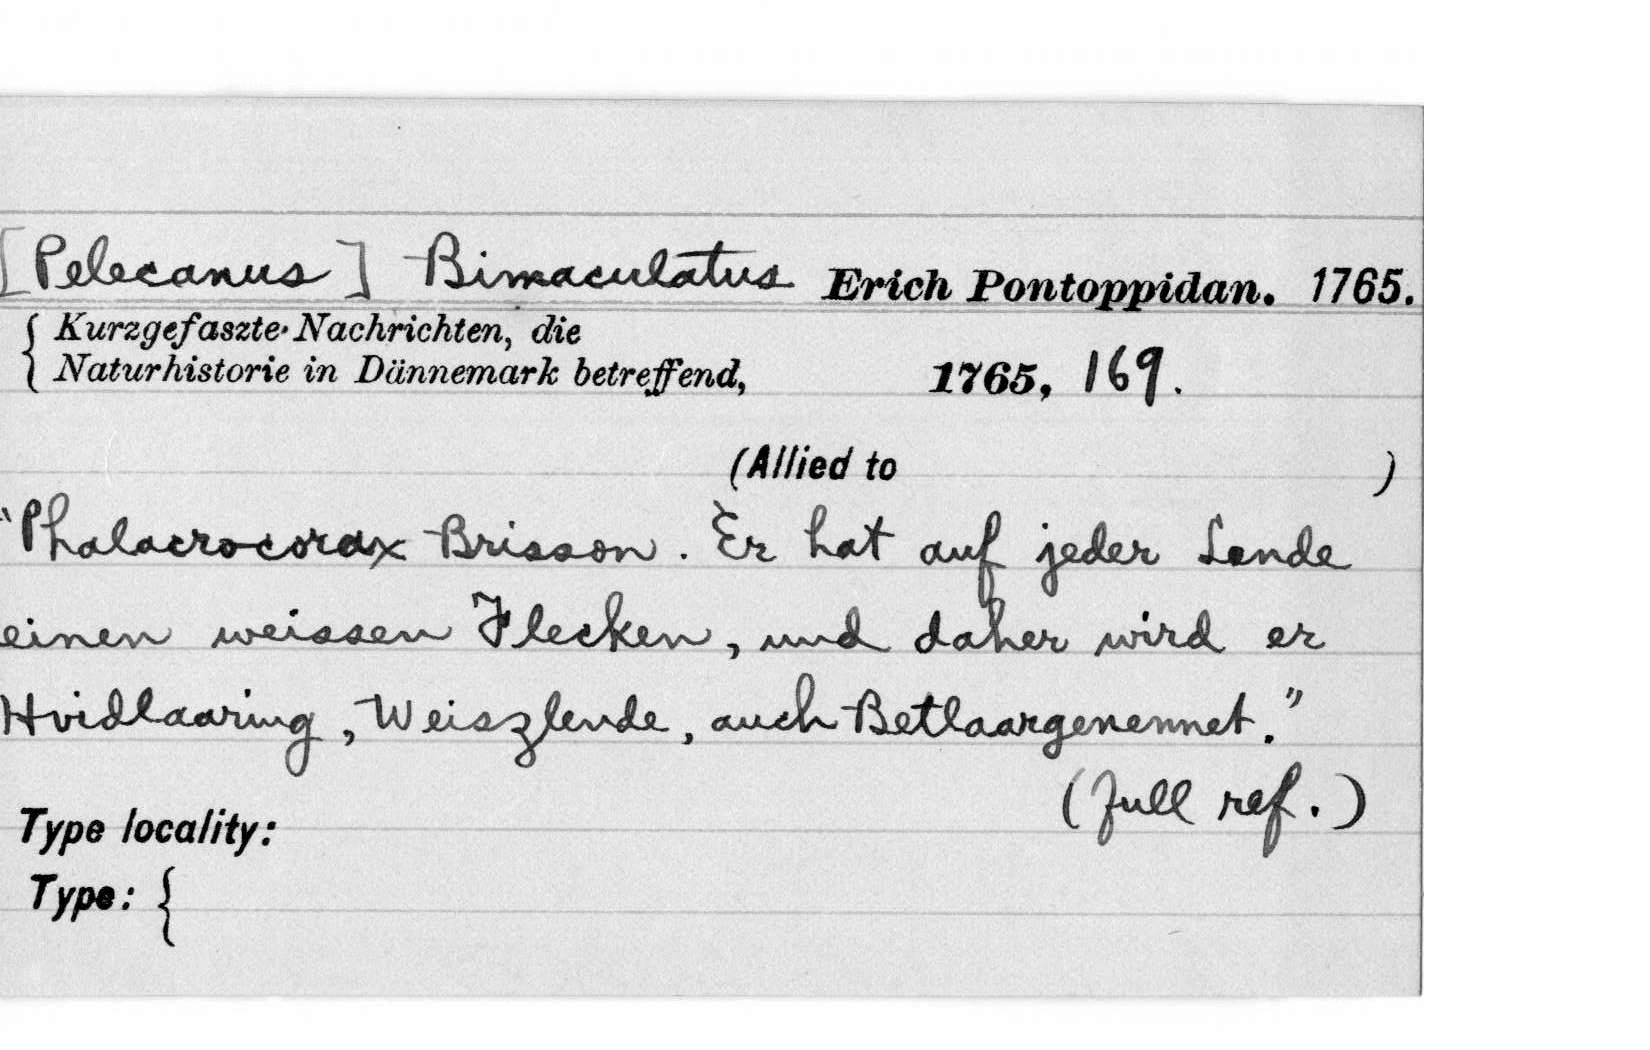 [Pelecanus] Bimaculatus Erich Pontoppidan. 1765.
{ Kurzgefaszte Nachrichten, die
Naturhistorie in Dännemark betreffend, 1765, 169.
(Allied to )
"Phalacrocorax Brisson. Er hat auf jeder Lende
einen weissen Flecken, und daher wird er
Hvidlaaring, Weiszlende, auch Betlaargenennet."
(full ref.)
Type locality:
Type: {